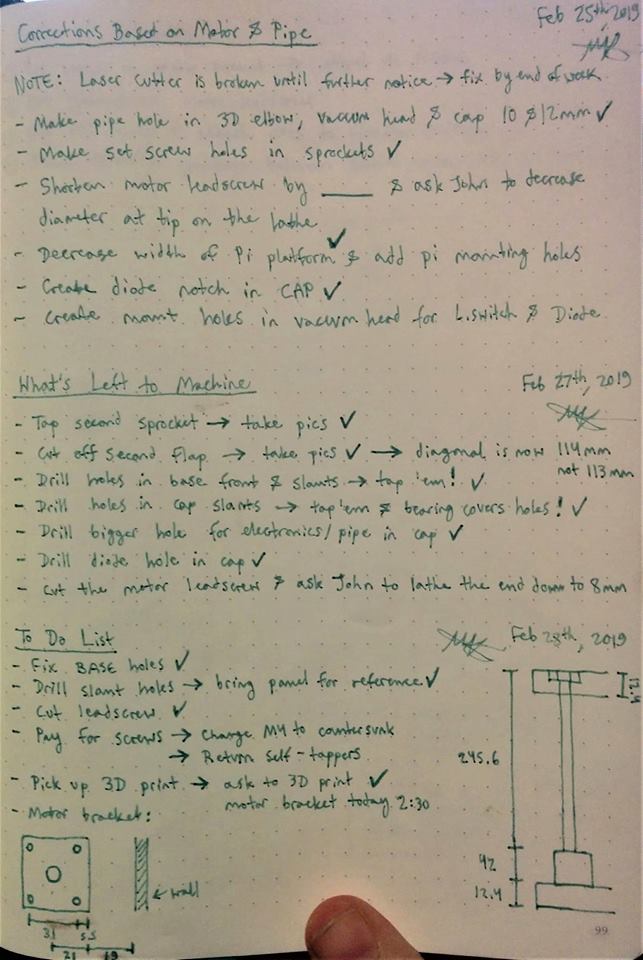 Corrections Based on Motor & Pipe
Feb 25th, 2019
NOTE: Laser cutter is broken until further notice → fix by end of week
- Make pipe hole in 3D elbow, vacuum head & cap 10 & 12mm ✓
- Make set screw holes in sprockets ✓
- Shorten motor leadscrew by ____ & ask John to decrease
diameter at tip on the lathe
- Decrease width of Pi platform ✓ & add pi mounting holes
- Create diode notch in CAP ✓
- Create mount holes in vacuum head for L.switch & Diode
What's Left to Machine
Feb 27th, 2019
- Tap second sprocket → take pics ✓
- Cut off second flap → take pics ✓ → diagonal is now 114mm
not 113mm
- Drill holes in base front & slants → tap 'em! ✓
- Drill holes in cap slants → tap 'em & bearing covers holes! ✓
- Drill bigger hole for electronics/pipe in cap ✓
- Drill diode hole in cap ✓
- Cut the motor leadscrew & ask John to lathe the end down to 8mm
To Do List
Feb 28th, 2019
- Fix BASE holes ✓
- Drill slant holes → bring panel for reference ✓
- Cut leadscrew ✓
- Pay for screws → Change M4 to countersunk
→ Return self-tappers
- Pick up 3D print → ask to 3D print ✓
motor bracket today 2:30
- Motor bracket:
245.6
42
12.4
← wall
31
5.5
21
19
99